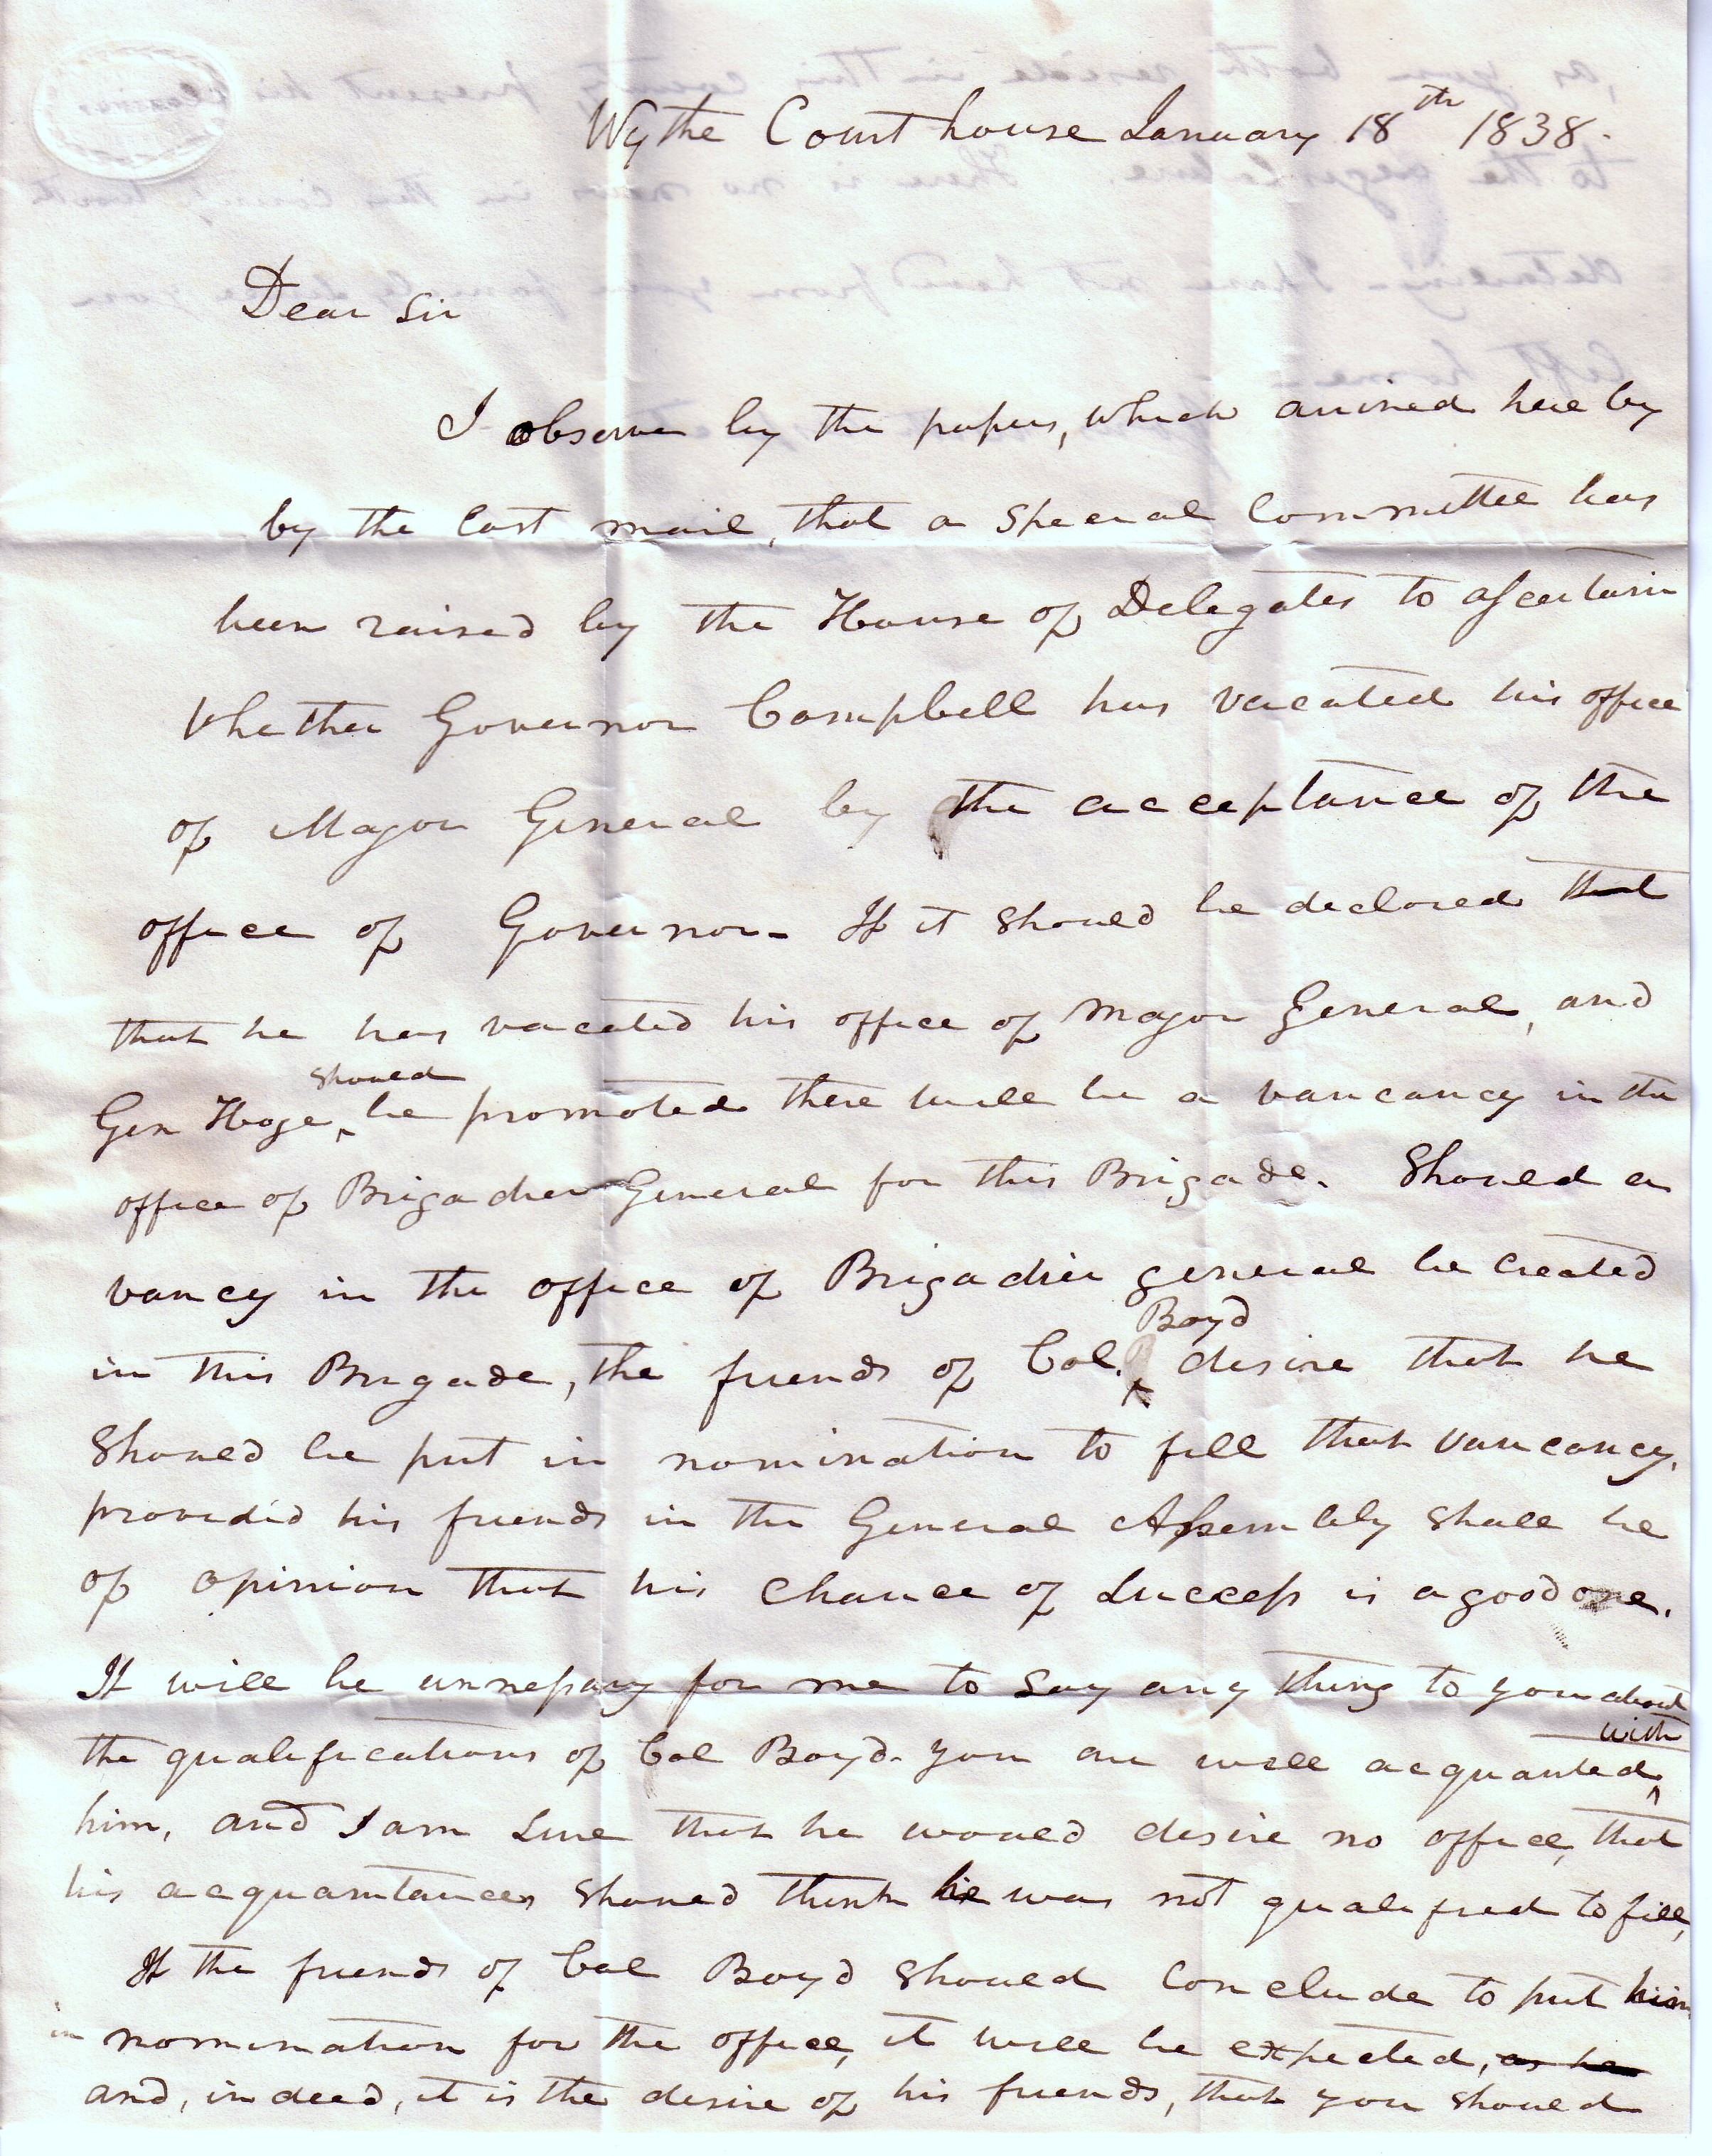 Wythe Court house January 18th 1838.
Dear Sir
I observe by the papers, which arrived here by
by the last mail, that a Special Committee has
been raised by the House of Delegates to ascertain
whether Governor Campbell has vacated his office
of Major General by the acceptance of the
office of Governor - If it should be declared that
that he has vacated his office of Major General, and
should
Gen Hoge, be promoted there will be a vancancy in the
office of Brigadier General for this Brigade. Should a
vancy in the office of Brigadier general be created
Boyd
in this Brigade, the friends of Col. desire that he
Should be put in nomination to fill that vancancy,
provided his friends in the General Assembly shall be
of opinion that his chance of success is a good one.
It will be unnessary for me to say any thing to you about
with
the qualifications of Col Boyd. you are well acquanted
him, and I am sure that he would desire no office, that
his acquamtances should think he was not qualified to fill,
If the friends of Col Boyd should conclude to put him
in nomination for the office, it will be expected, as he
and, indeed, it is the desire of his friends, that you should